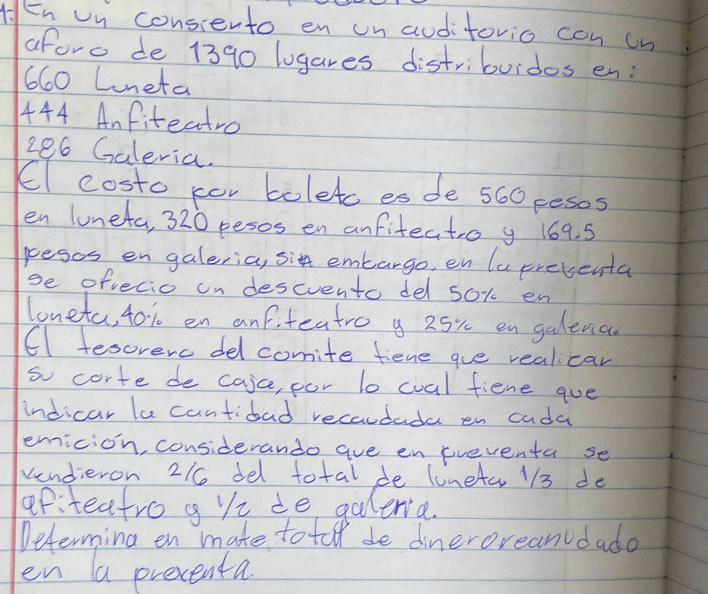 1: En un consierto en un auditorio con un
aforo de 1390 lugares distribuidos en:
660 Luneta
444 Anfiteatro
286 Galeria.
El costo por boleto es de 560 pesos
en luneta, 320 pesos en anfiteatro y 169.5
pesos en galeria, sin embargo. en la preventa
se ofrecio un descuento del 50% en
luneta, 40% en anfiteatro y 25% en galeria.
El tesorero del comite tiene que realicar
su corte de caja, por lo cual tiene que
indicar la cantidad recaudada en cada
emición, considerando que en preventa se
vendieron 2/6 del total de luneta 1/3 de
afiteatro y 1/2 de galeria.
Determina en mate total de dinero
en la prexenta.